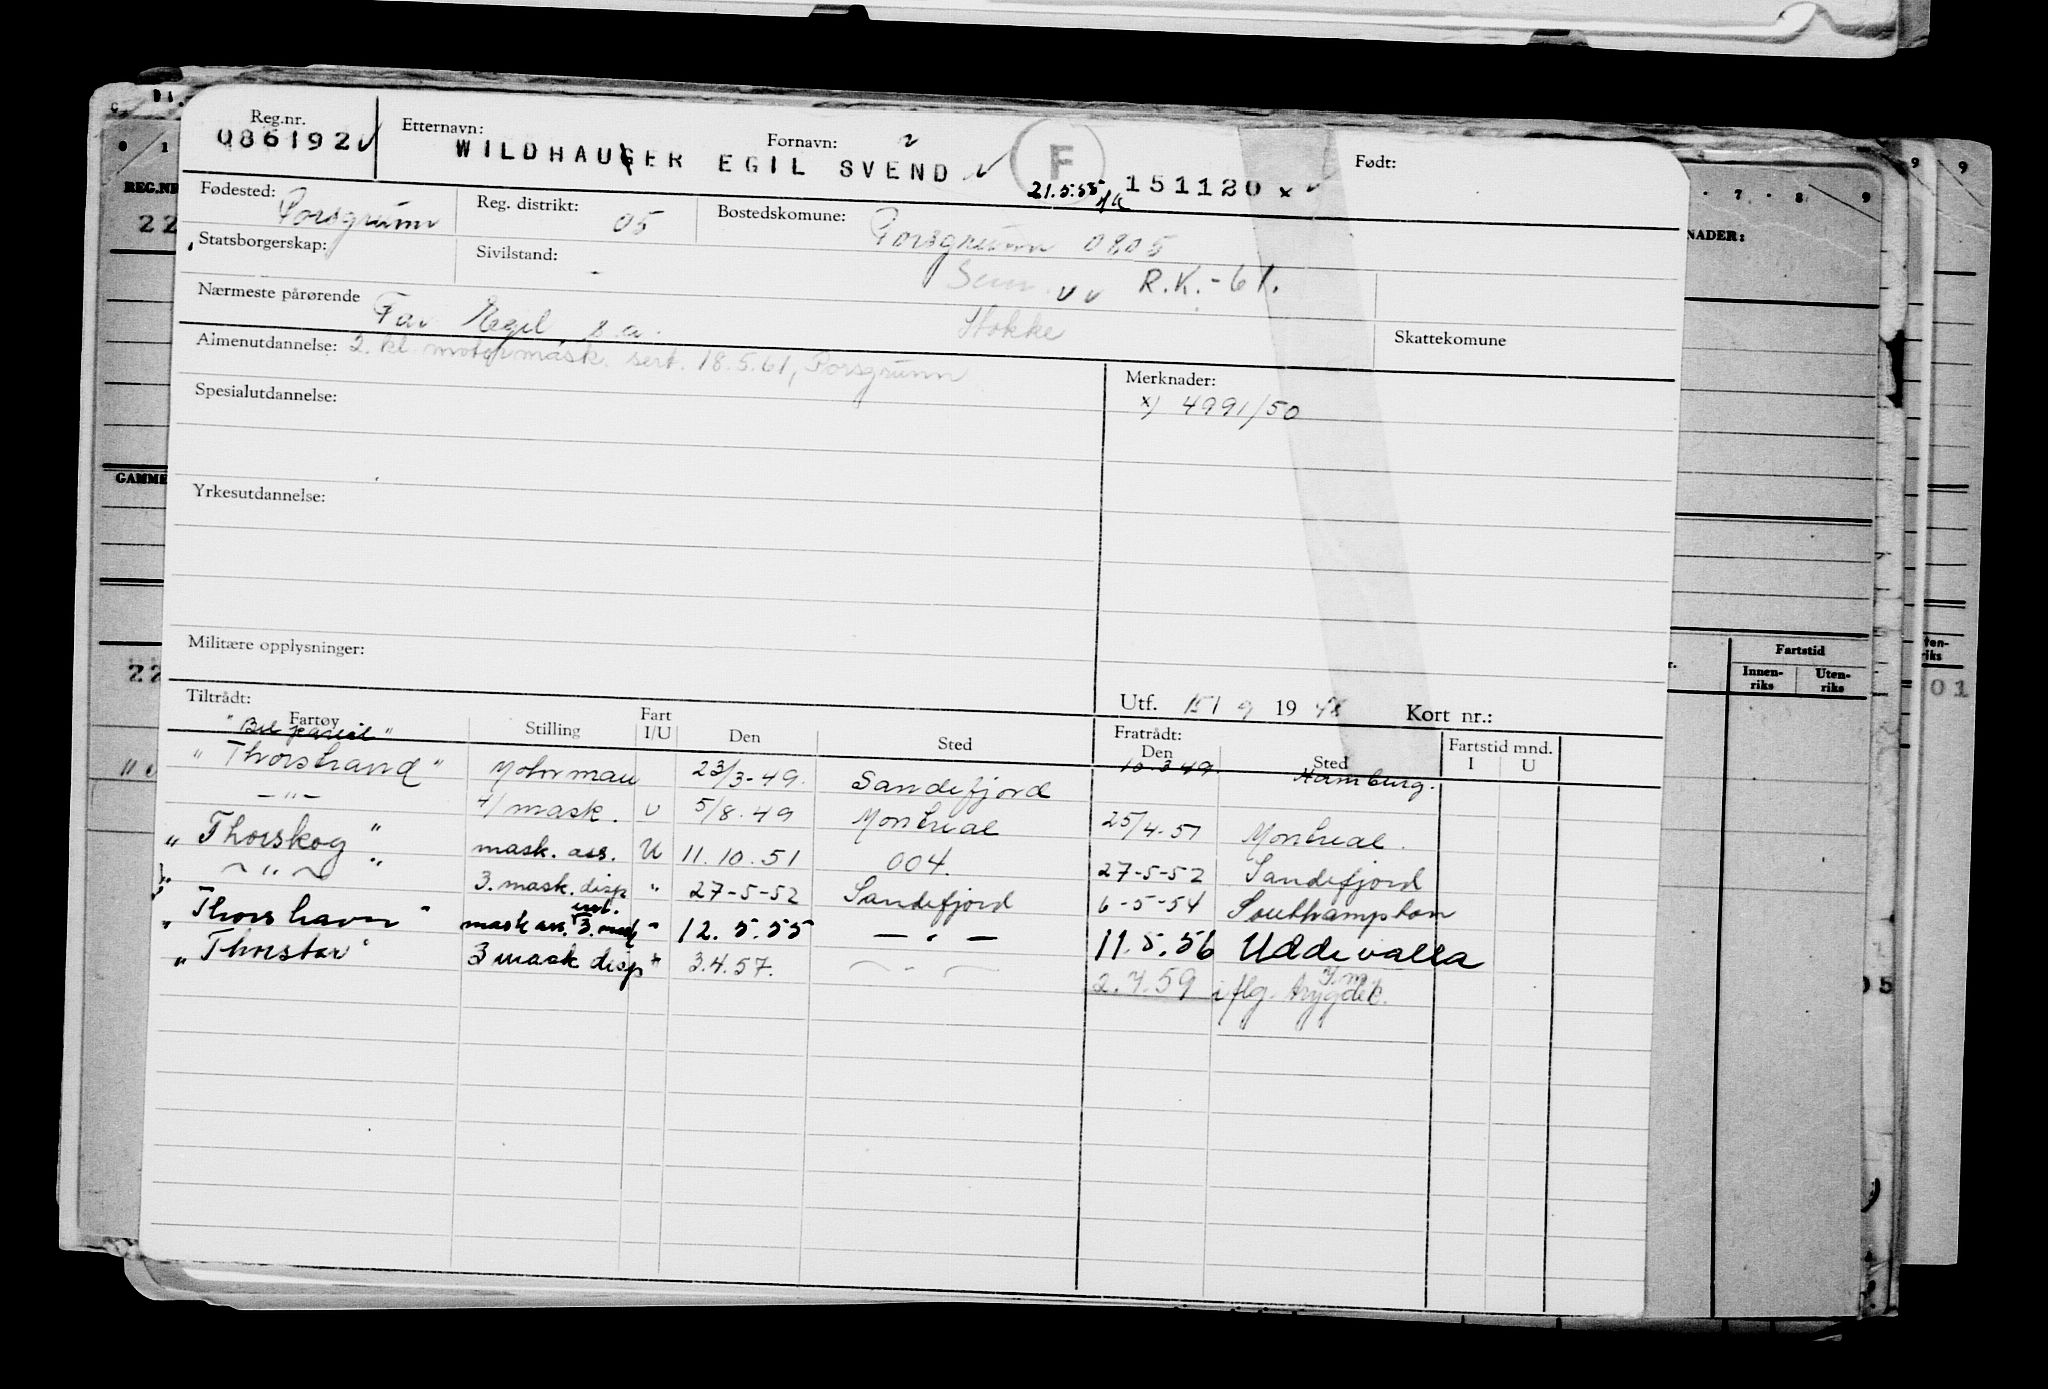 Reg.nr. Etternavn: Fornavn: Født:
086192 WILDHAUGER EGIL SVEND F 151120 x
21.5.55
Fødested: Porsgrunn Reg. distrikt: 05 Bostedskomune: Porsgrunn 0805
Statsborgerskap: Sivilstand: - Sem R.K.-61.
Nærmeste pårørende Far Egil s.a. Stokke Skattekomune
Almenutdannelse: 2. kl. motormask. sert. 18.5.61, Porsgrunn
Merknader:
x) 4991/50
Spesialutdannelse:
Yrkesutdannelse:
Militære opplysninger:
Utf. 15/ 9 19 48 Kort nr.:
Tiltrådt: Fratrådt:
Fartøy Stilling Fart I/U Den Sted Den Sted Fartstid mnd. I U
10.3.49. Hamburg.
"Thorstrand" Motorman 23/3-49. Sandefjord
-"- 4/mask. U 5/8.49 Montreal 25/4-51 Montreal.
"Thorskog" mask. ass. U 11.10.51 004. 27-5-52 Sandefjord
-"- " 3. mask. disp " 27-5-52 Sandefjord 6-5-54 Southampton
"Thorshavn" mask ass. 3. mask " 12.5.55 -"- 11.5.56 Uddevalla
"Thorstar" 3 mask disp " 3.4.57. -"- 2.7.59 i flg. trygdek.
REG.NR
22
GAMME
22
NADER:
7 8 9
Fartstid
Innen-riks Uten-riks
01
05